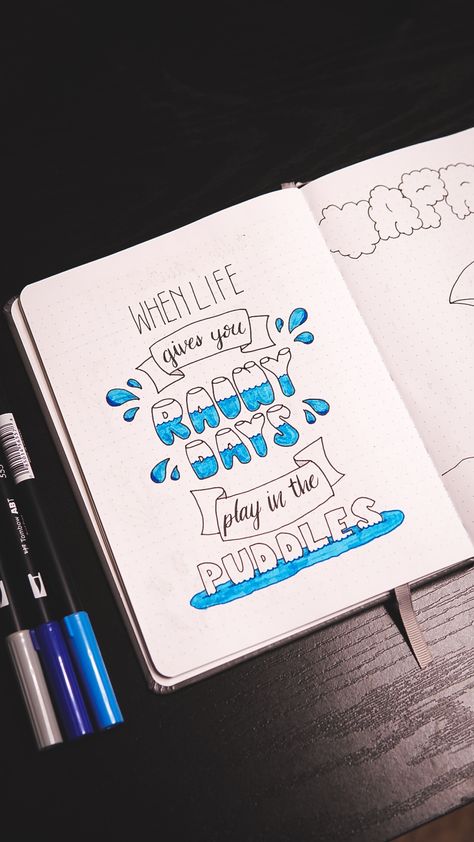 WHEN LIFE
gives you
RAINY
DAYS
play in the
PUDDLES
ABT
Tombow